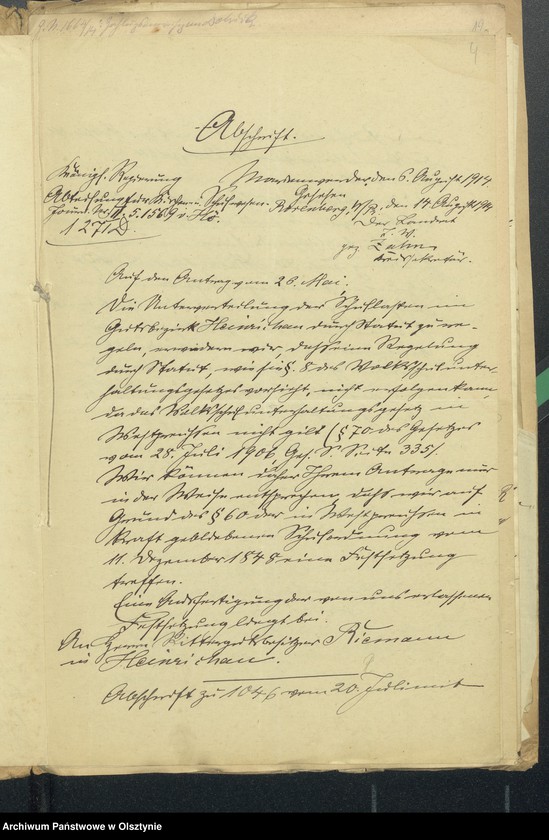 19.
4
Abschrift.
Königl. Regierung Marienwerder, den 6. August 1914.
Abteilung für Kirchen u. Schulwesen. Gesehen
Journ. No. II. 5. 1569 v. Hö. Rosenberg, W/Pr., den 14. August 1914
1271 D. Der Landrat
I. V.
gez. Zahn,
Kreissekretär.
Auf den Antrag vom 26. Mai.
Die Unterverteilung der Schullasten im
Gutsbezirk Heinrichau durch Statut zu re-
geln, erwidern wir, daß eine Regelung
durch Statut, wie sie § 8 des Volksschulunter-
haltungsgesetzes vorsieht, nicht erfolgen kann,
da das Volksschulunterhaltungsgesetz in
Westpreußen nicht gilt (§ 70 des Gesetzes
vom 28. Juli 1906 Ges. S. Seite 335/.
Wir können daher Ihrem Antrage nur
in der Weise entsprechen, daß wir auf
Grund des § 60 der in Westpreußen in
Kraft gebliebenen Schulordnung vom
11. Dezember 1845 eine Festsetzung
treffen.
Eine Ausfertigung der von uns erlassenen
Festsetzung liegt bei.
An Herrn Rittergutsbesitzer Riemann
in Heinrichau.
Abschrift zu 1046 vom 20. Juli mit
Archiwum Państwowe w Olsztynie